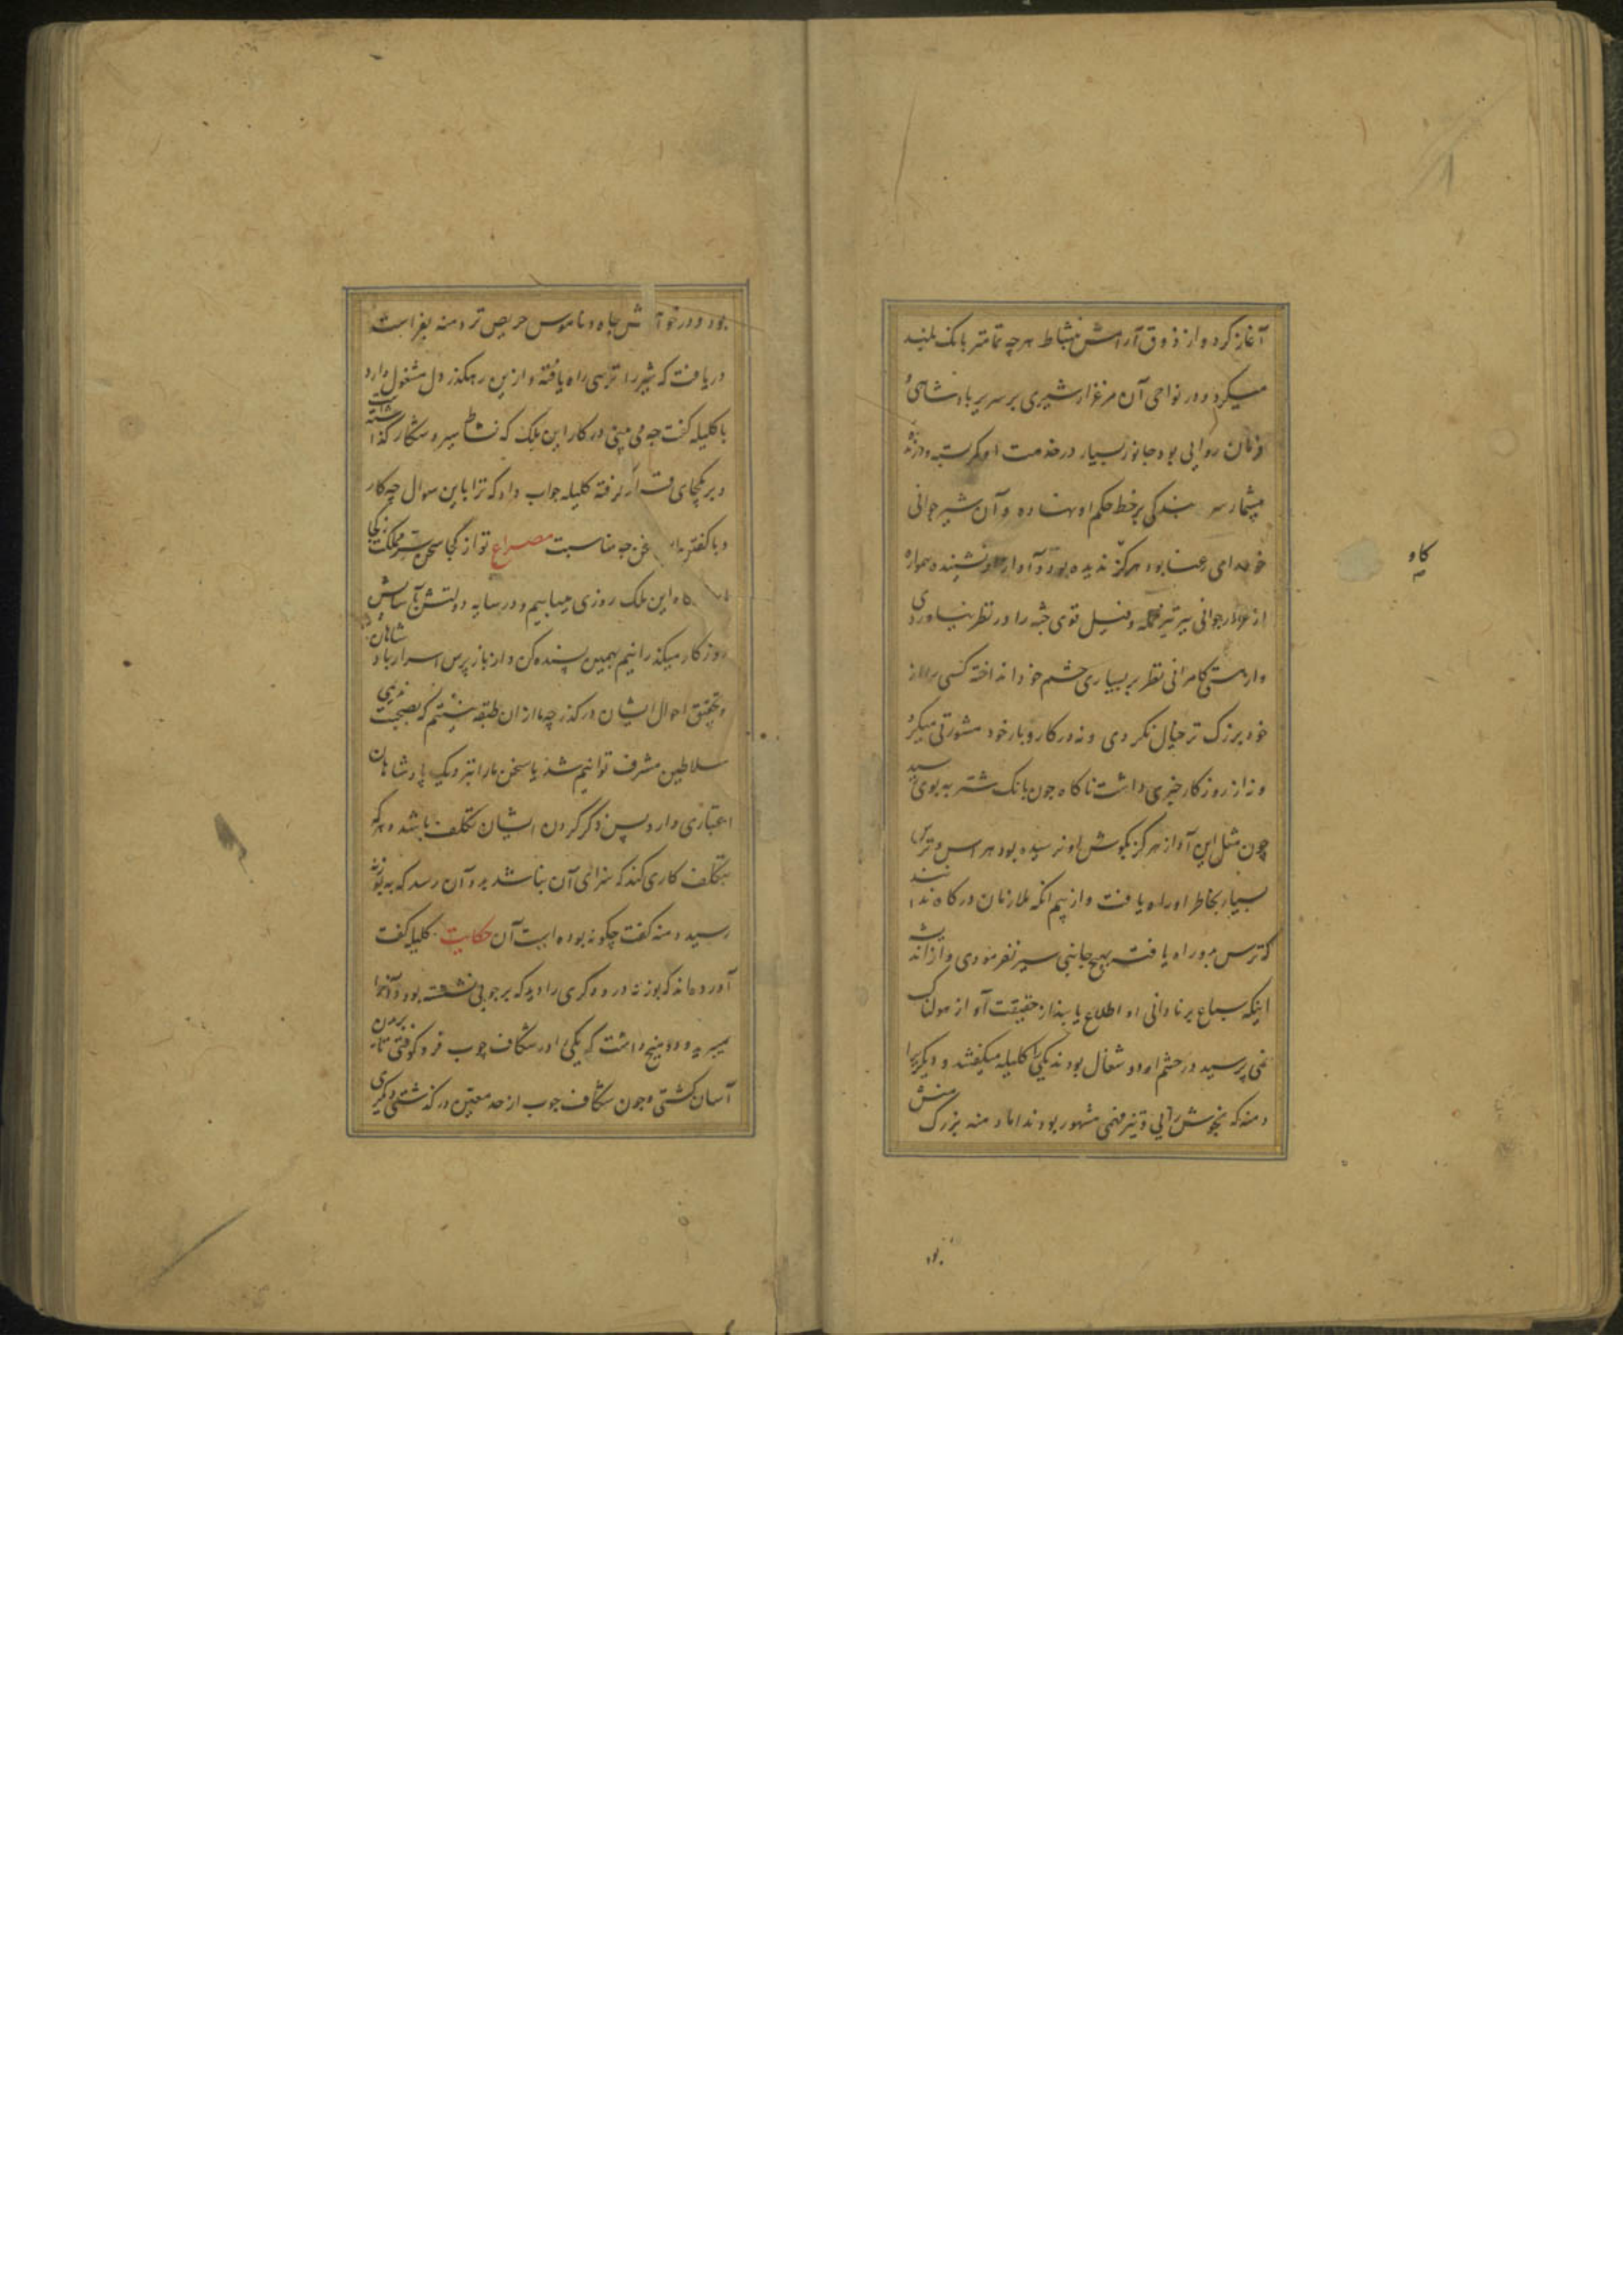 آغاز کرد و از ذوق آرامش نشاط هرچه تمامتر بانک بلند
میکرد و در نواحی آن مرغزار شیری بر سریر بادشاهی و
فرمان روایی بود جانور بسیار در خدمت او کمر بسته و درنده
بیشمار سر بندکی بر خط حکم او نهاده و آن شیر جوانی
خودرای رعنا بود هرکز ندیده بود و آواز او نشینده همواره
از جوانی ببر تیز حمله و فیل قوی جثه را در نظر نیاوردی
و از مستی کامرانی نظر بر بسیاری حشم خود انداخته کسی را از
خود بزرک تر خیال نکردی و نه در کار و بار خود مشورتی میکرد
و نه از روزکار خبری داشت ناکاه چون بانک شتربه بوی رسید
چون مثل این آواز هرکز بکوش او نرسیده بود هراس و ترس
بسیار بخاطر او راه یافت و از بیم انکه ملازمان درکاه ندانند
که ترس بدو راه یافت بهیچ جانبی سیر نفرمودی و از اندیشه
اینکه سباع بر نادانی او اطلاع یابند از حقیقت آواز هولناک
نمی پرسید در حشم او دو شغال بودند یکی را کلیله میکفتند و دیکریرا
دمنه که بخوش رایی و تیز فهمی مشهور بودند اما دمنه بزرک منش
بود
کاو
بود و در خواهش جاه و ناموس حریص تر دمنه بفراست
دریافت که شیر را ترسی راه یافته و ازین رهکذر دل مشغول دارد
با کلیله کفت چه می بینی در کار این ملک که نشاط سیر و شکار کذاشته است
و بر یکجای قرار کرفته کلیله جواب داد که ترا باین سوال چه کار
و با کفتن این سخن چه مناسبت مصراع تو از کجا سخن سر مملکت ز کجا
ما بدرکاه این ملک روزی مییابیم و در سایه دولتش بآسایش
روزکار میکذرانیم بهمین بسنده کن و از بازپرس اسرار بادشاهان
و تحقیق احوال ایشان درکذر چه ما از ان طبقه نیستیم که بصحبت ندیمی
سلاطین مشرف توانیم شد یا سخن ما را نزدیک پادشاهان
اعتباری دارد پس ذکر کردن ایشان تکلف باشد و هرکه
بتکلف کاری کند که سزای آن نباشد بدو آن رسد که به بوزنه
رسید دمنه کفت چکونه بوده است آن حکایت کلیله کفت
آورده‌اند که بوزنه درودکری را دید که بر چوبی نشسته بود و آنرا
میبرید و دو میخ داشت که یکی را در شکاف چوب فروکوفتی تا بریدن
آسان کشتی و چون شکاف چوب از حد معین درکذشتی دیکری